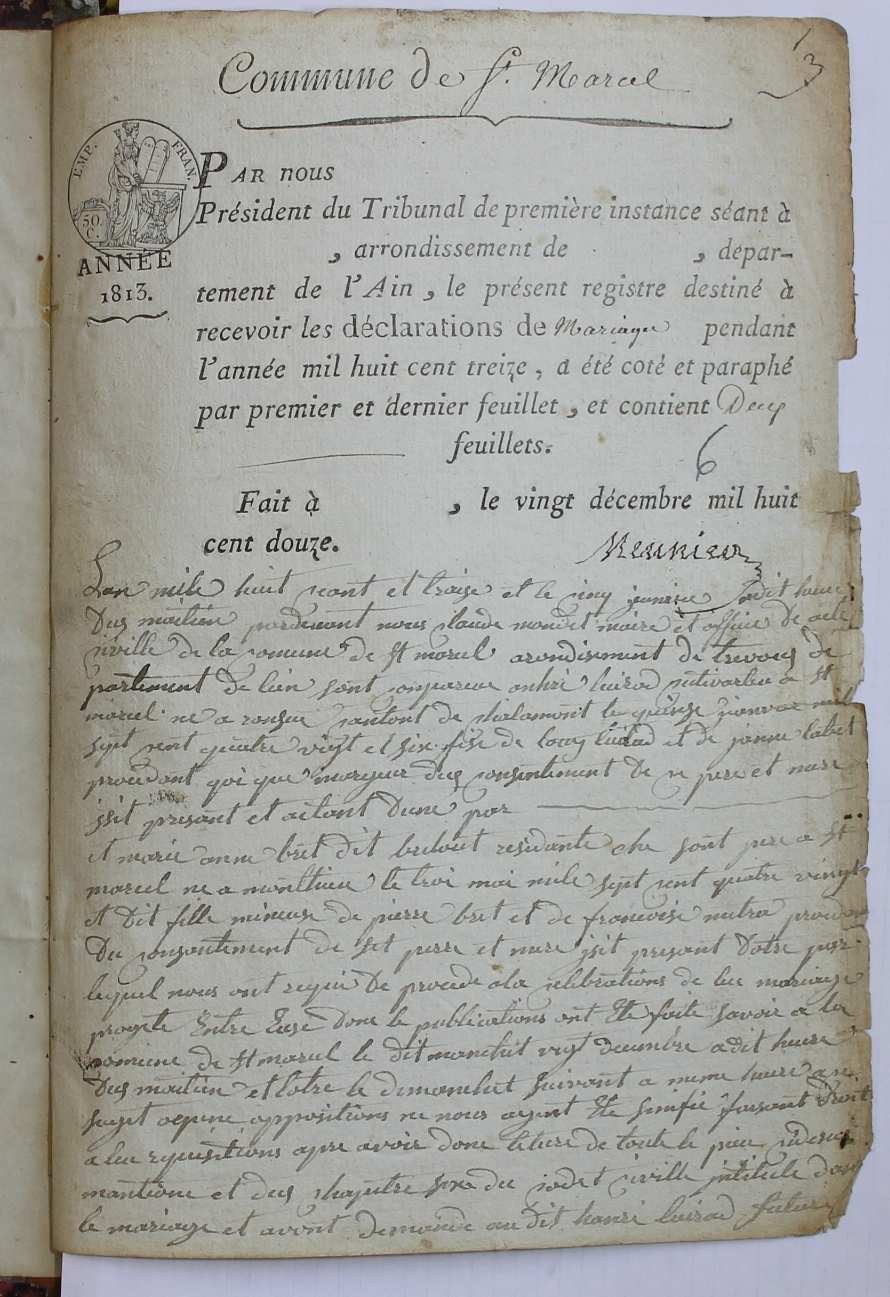 3
Commune de St. Marcel
EMP. FRAN.
50 C.
ANNÉE
1813.
PAR nous
Président du Tribunal de première instance séant à
, arrondissement de , dépar-
tement de l'Ain, le présent registre destiné à
recevoir les déclarations de Mariage pendant
l'année mil huit cent treize, a été coté et paraphé
par premier et dernier feuillet, et contient Deux
feuillets.
6
Fait à , le vingt décembre mil huit
cent douze.
Meunier
Lan mile huit cent et traise et le cinq a dit heure
Dus maitien pardevant nous claude mondet maire et office De acte
civille De la comune De St marcel arondisement De trevous De
partement De lain sont conparue anhri luirad cultivateu a St
marcel ne a ronsue cantont de chalamont le quinse janvae mil
sept cent quatre vigt et six fise de louy luirad et de janne labet
procedant qoi que majeur du consentement De ce pere et mere
isit presant et aitant Dune par
et marie anne bret dit bredout residante che sont pere a St
marcel ne a monthieu le troi mai mile sept cent quatre vingt
et Dit fille mineuse de pierre bret et de francoise mitra procedan
Du consontement de set perre et mere isit presant Dotre par
lequel nous ont requi De procede a la celibrations de leu mariage
progete Entre Euse Donc le publications ont Ete faite savoir a la
comune de St marcel le ditmanchit vigt decembre a dit heure
Dus maitien et lotre le dimanchet suivant a meme heure
aqune oppositions ne nous ayent Ete sinifie faisant Droit
a leu requisitions apre avoir done lecture de toute le piece si desus
mantione et dus chapitre sixe du codet civille intitule dou
le mariage et avont demande au dit hanri luirad futur